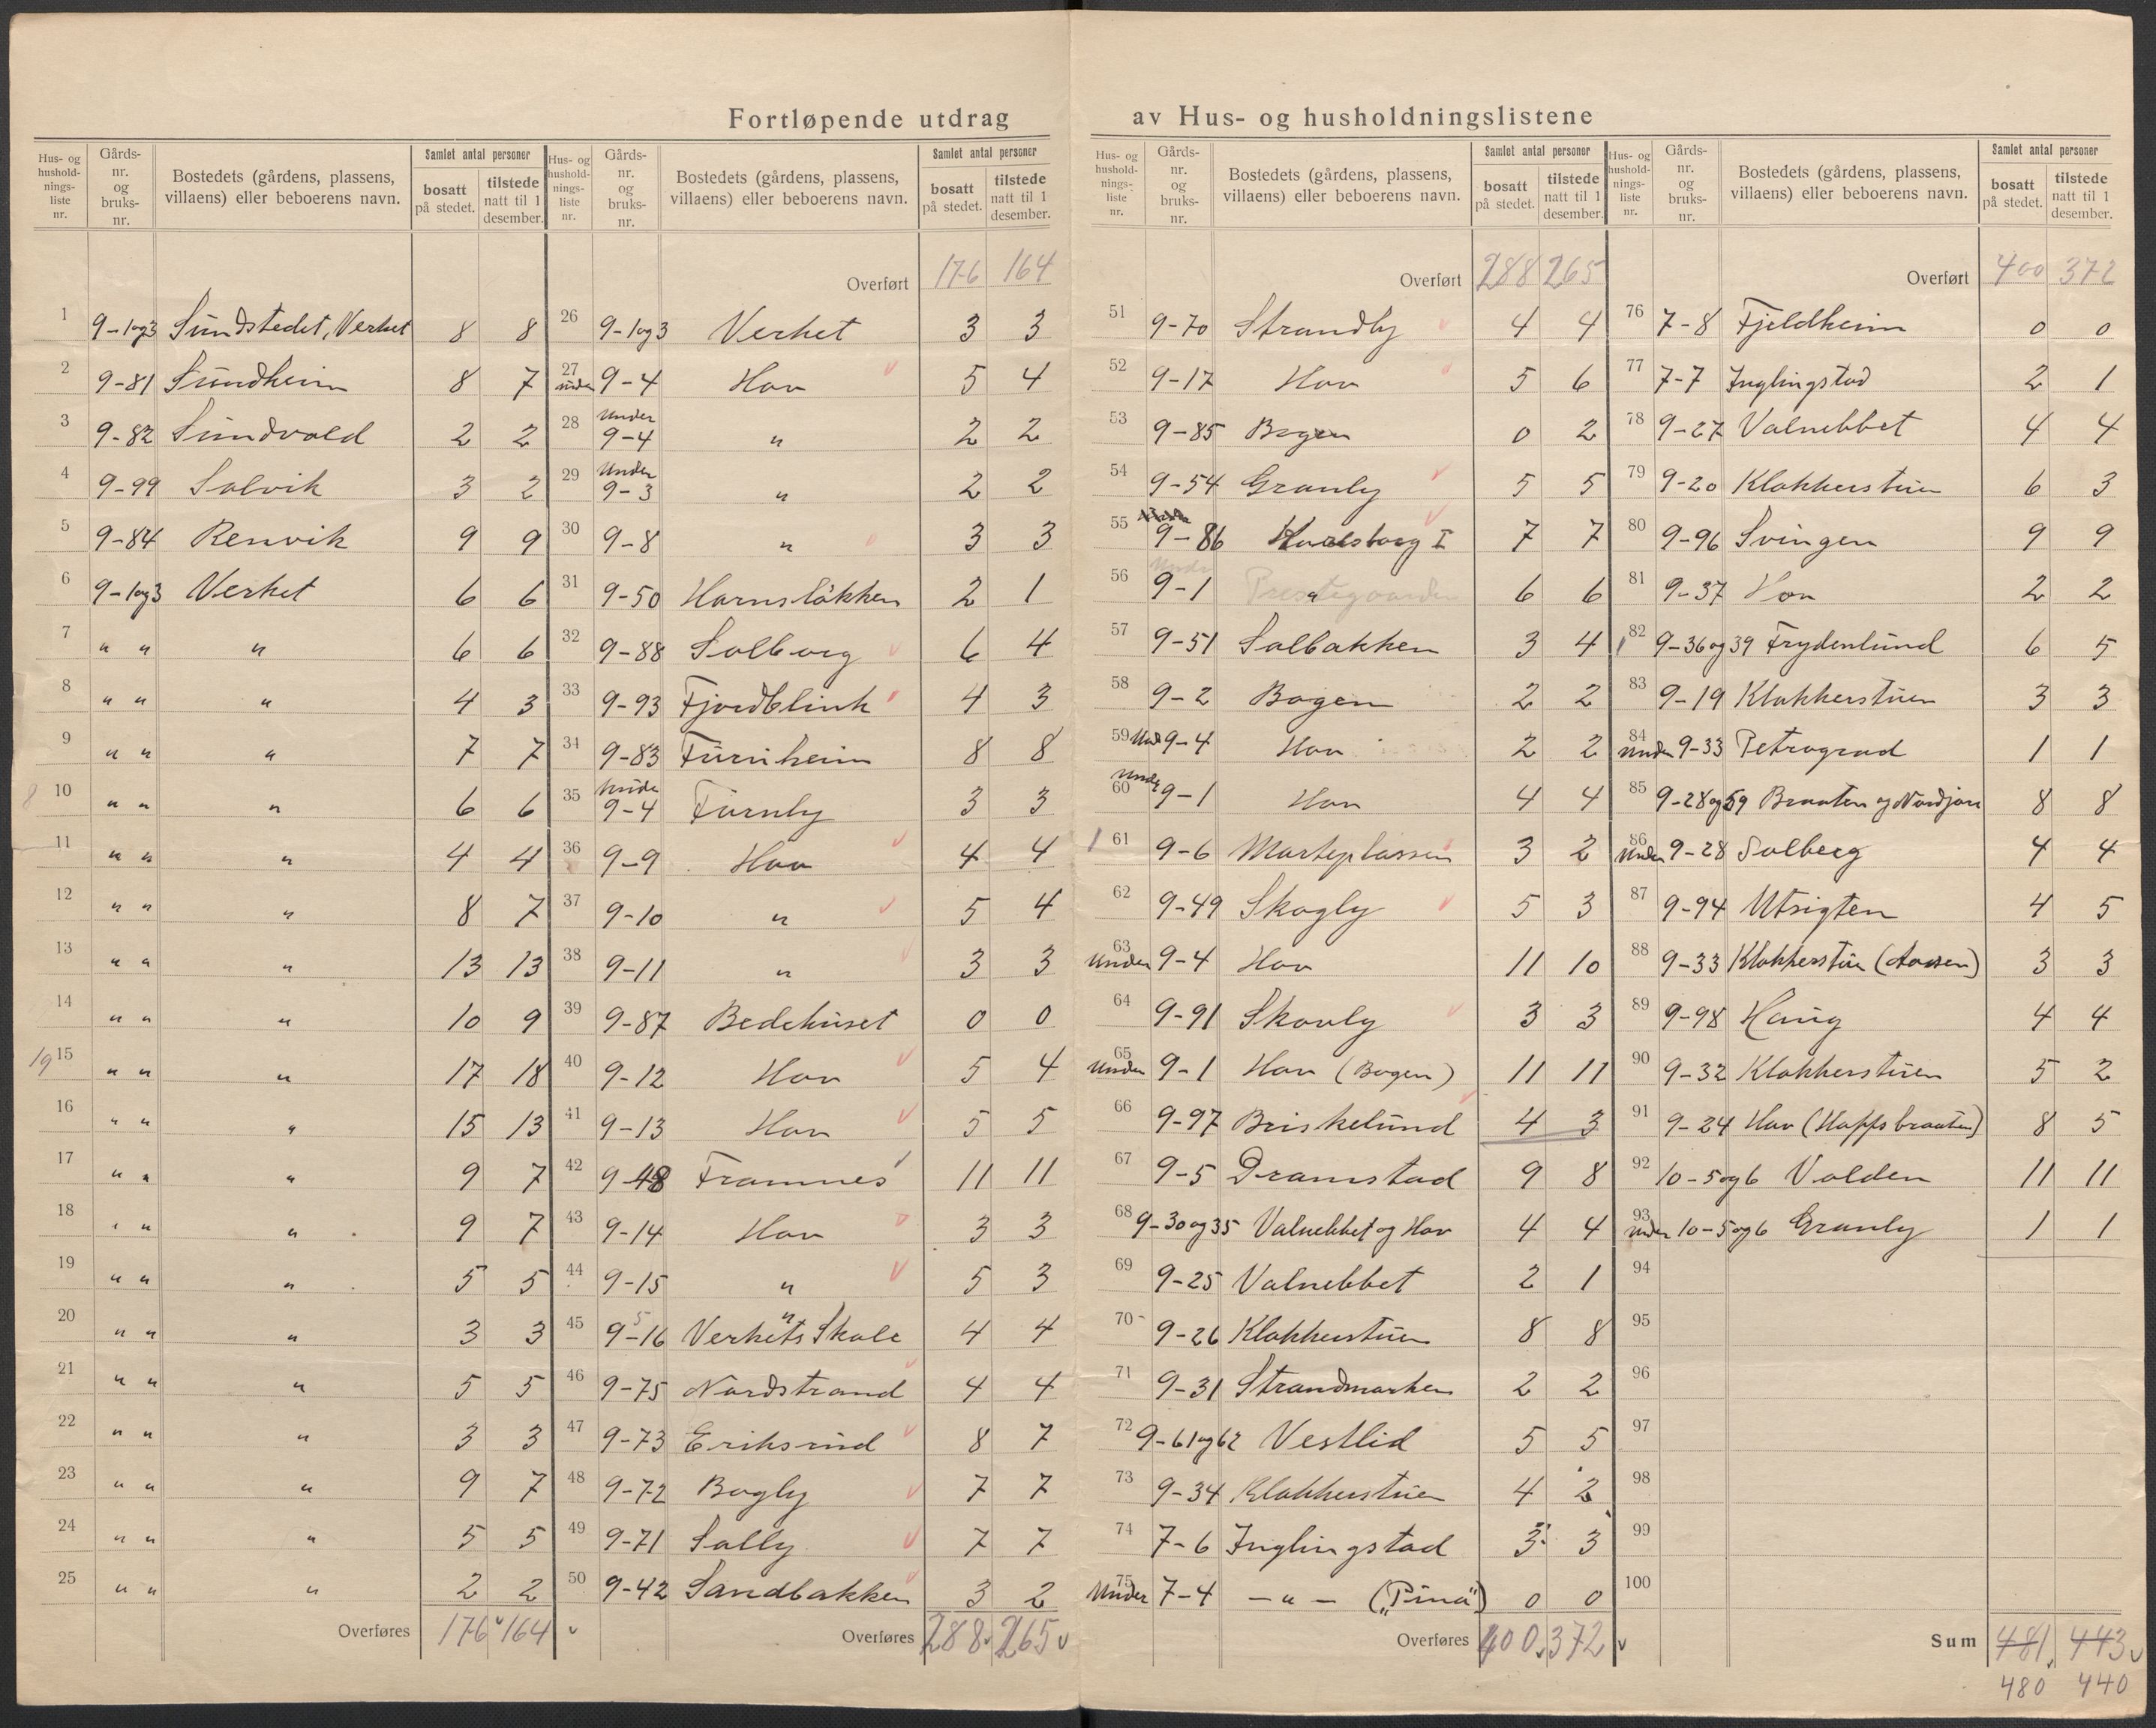 Fortløpende utdrag av Hus- og husholdningslistene
Hus- og husholdningsliste nr. Gårds-nr. og bruks-nr. Bostedets (gårdens, plassens, villaens) eller beboerens navn. Samlet antal personer bosatt på stedet. tilstede natt til 1 desember.
1 9-1og3 Sundstedet, Verket 8 8
2 9-81 Sundheim 8 7
3 9-82 Sundvold 2 2
4 9-99 Solvik 3 2
5 9-84 Renvik 9 9
6 9-1og3 Verket 6 6
7 " " " 6 6
8 " " " 4 3
9 " " " 7 7
10 " " " 6 6
11 " " " 4 4
12 " " " 8 7
13 " " " 13 13
14 " " " 10 9
15 " " " 17 18
16 " " " 15 13
17 " " " 9 7
18 " " " 9 7
19 " " " 5 5
20 " " " 3 3
21 " " " 5 5
22 " " " 3 3
23 " " " 9 7
24 " " " 5 5
25 " " " 2 2
Overføres 176 164
Hus- og husholdningsliste nr. Gårds-nr. og bruks-nr. Bostedets (gårdens, plassens, villaens) eller beboerens navn. Samlet antal personer bosatt på stedet. tilstede natt til 1 desember.
Overført 176 164
26 9-1og3 Verket 3 3
27 under 9-4 Hov 5 4
28 under 9-4 " 2 2
29 under 9-3 " 2 2
30 9-8 " 3 3
31 9-50 Hornsløkken 2 1
32 9-88 Solborg 6 4
33 9-93 Fjordblink 4 3
34 9-83 Furuheim 8 8
35 under 9-4 Furuly 3 3
36 9-9 Hov 4 4
37 9-10 " 5 4
38 9-11 " 3 3
39 9-87 Bedehuset 0 0
40 9-12 Hov 5 4
41 9-13 Hov 5 5
42 9-48 Framnes 11 11
43 9-14 Hov 3 3
44 9-15 " 5 3
45 9-16 Verkets Skole 4 4
46 9-75 Nordstrand 4 4
47 9-73 Eriksrud 8 7
48 9-72 Bogly 7 7
49 9-71 Solly 7 7
50 9-42 Sandbakken 3 2
Overføres 288 265
Hus- og husholdningsliste nr. Gårds-nr. og bruks-nr. Bostedets (gårdens, plassens, villaens) eller beboerens navn. Samlet antal personer bosatt på stedet. tilstede natt til 1 desember.
Overført 288 265
51 9-70 Strandly 4 4
52 9-17 Hov 5 6
53 9-85 Bogen 0 2
54 9-54 Granly 5 5
55 9-86 Karlsborg I 7 7
56 under 9-1 Prestegaarden 6 6
57 9-51 Solbakken 3 4
58 9-2 Bogen 2 2
59 und 9-4 Hov 2 2
60 under 9-1 Hov 4 4
61 9-6 Marteplassen 3 2
62 9-49 Skogly 5 3
63 under 9-4 Hov 11 10
64 9-91 Skovly 3 3
65 under 9-1 Hov (Bogen) 11 11
66 9-97 Briskelund 4 3
67 9-5 Dramstad 9 8
68 9-30og35 Valnebbet og Hov 4 4
69 9-25 Valnebbet 2 1
70 9-26 Klokkerstuen 8 8
71 9-31 Strandmarken 2 2
72 9-61og62 Vestlid 5 5
73 9-34 Klokkerstuen 4 2
74 7-6 Inglingstad 3 3
75 under 7-4 — " — („Pina") 0 0
Overføres 400 372
Hus- og husholdningsliste nr. Gårds-nr. og bruks-nr. Bostedets (gårdens, plassens, villaens) eller beboerens navn. Samlet antal personer bosatt på stedet. tilstede natt til 1 desember.
Overført 400 372
76 7-8 Fjeldheim 0 0
77 7-7 Inglingstad 2 1
78 9-27 Valnebbet 4 4
79 9-20 Klokkerstuen 6 3
80 9-96 Svingen 9 9
81 9-37 Hov 2 2
82 9-36og39 Frydenlund 6 5
83 9-19 Klokkerstuen 3 3
84 under 9-33 Petrograd 1 1
85 9-28og59 Braaten og Nordjore 8 8
86 under 9-28 Solberg 4 4
87 9-94 Utsigten 4 5
88 9-33 Klokkerstuen (Aasen) 3 3
89 9-98 Haug 4 4
90 9-32 Klokkerstuen 5 2
91 9-24 Hov (Hoppsbraaten) 8 5
92 10-5og6 Volden 11 11
93 under 10-5og6 Granly 1 1
94
95
96
97
98
99
100
Sum 481 443
480 440